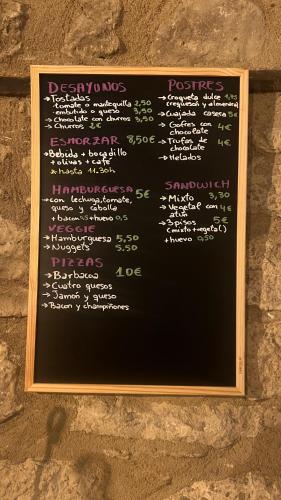 DESAYUNOS
→Tostadas
tomate o mantequilla 2,50
embutido o queso 3,50
→Chocolate con churros 3,50
→Churros 2€
ESMORZAR 8,50€
→Bebida + bocadillo
+ olivas + café
* hasta 11.30h
HAMBURGUESA 5€
→con lechuga, tomate,
queso y cebolla
+ bacon 0,5 + huevo 0,5
VEGGIE
→Hamburguesa 5,50
→Nuggets 5.50
PIZZAS
→Barbacoa 10€
→Cuatro quesos
→Jamón y queso
→Bacon y champiñones
POSTRES
→Croqueta dulce 1,75
(requesón y almendra)
→Cuajada casera 5€
→Gofres con 4€
chocolate
→Trufas de 4€
chocolate
→Helados
SANDWICH
→Mixto 3,30
→Vegetal con 4€
atún
→3 pisos 5€
(mixto + vegetal)
+ huevo 0,50